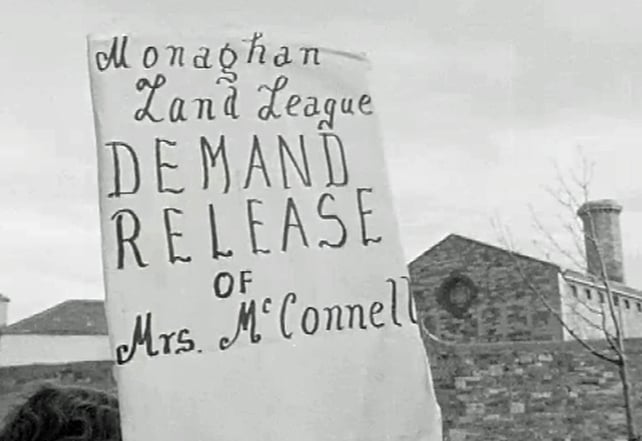 Monaghan
Land League
DEMAND
RELEASE
OF
Mrs. McConnell